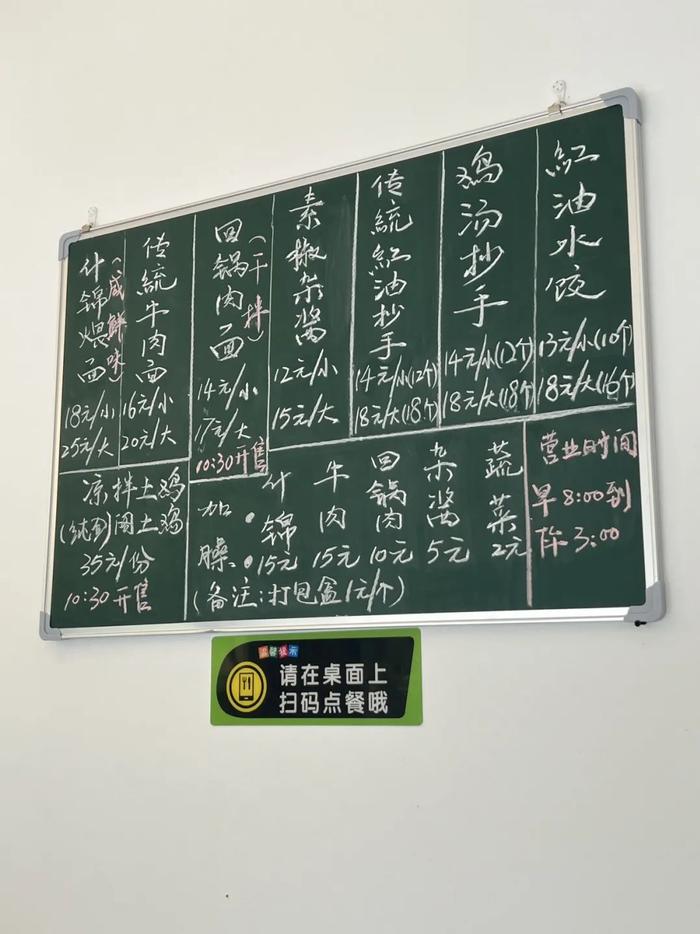 红油水饺
13元/小(10个)
18元/大(16个)
鸡汤抄手
14元/小(12个)
18元/大(18个)
传統紅油抄手
14元/小(12个)
18元/大(18个)
素椒杂酱
12元/小
15元/大
回锅肉面
(干拌)
14元/小
17元/大
10:30开售
传統牛肉面
16元/小
20元/大
什锦煨面
(咸鲜味)
18元/小
25元/大
凉拌土鸡
土鸡
35元/份
10:30开售
加臊:
什锦 15元
牛肉 15元
回锅肉 10元
杂酱 5元
蔬菜 2元
(备注:打包盒1元/个)
营业时间
早8:00到
阵3:00
温馨提示
请在桌面上
扫码点餐哦